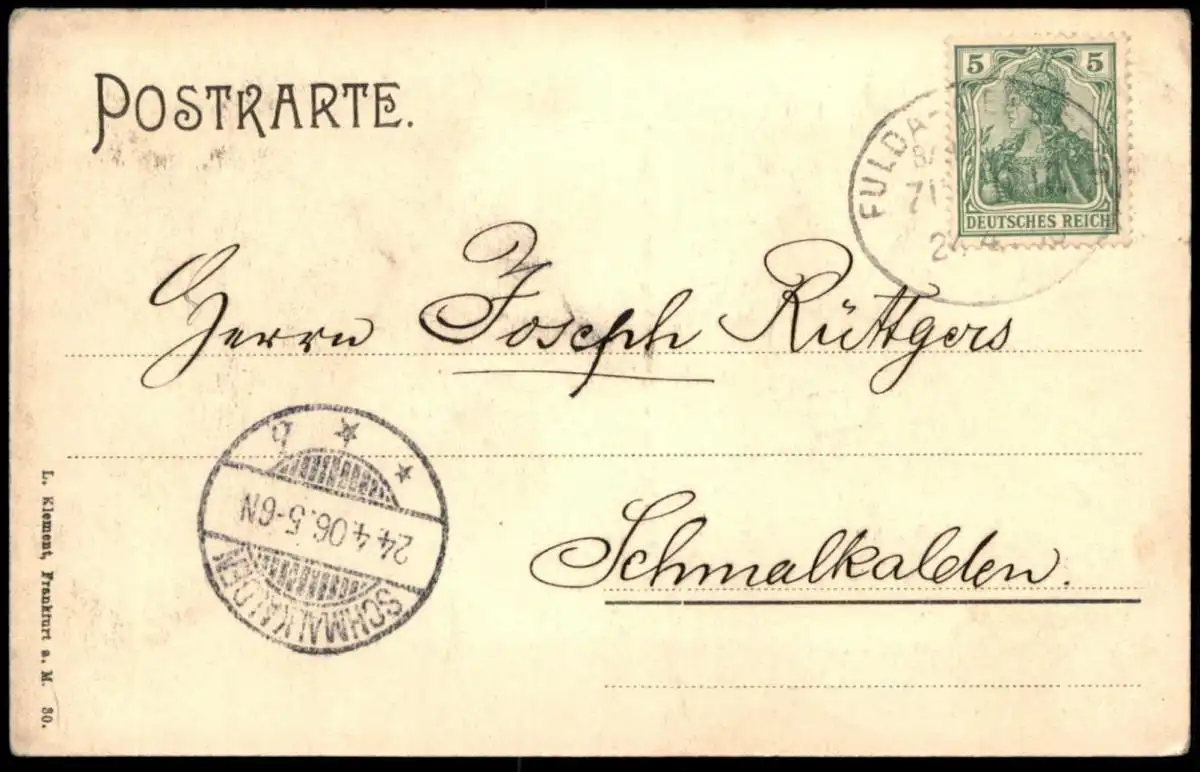 POSTKARTE.
5 5
DEUTSCHES REICH
FULDA-
24.4
Herrn Joseph Rüttgers
Schmalkalden.
SCHMALKALDEN
24.4.06.5-6N
b
L. Klement, Frankfurt a. M. 30.